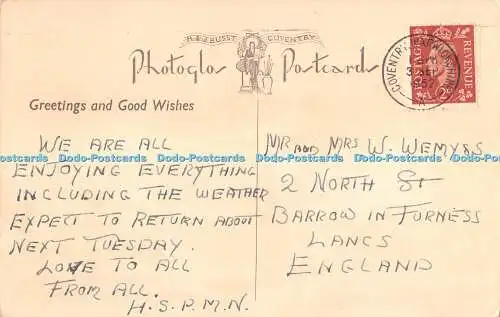 H.E.J BUSST COVENTRY
Photoglos Postcards
Greetings and Good Wishes
WE ARE ALL
ENJOYING EVERYTHING
INCLUDING THE WEATHER
EXPECT TO RETURN ABOUT
NEXT TUESDAY.
LOVE TO ALL
FROM ALL.
H.S.P.M.N.
MR AND MRS W. WEMYSS
2 NORTH St
BARROW IN FURNESS
LANCS
ENGLAND
COVENTRY WARWICKSHIRE
1957
A
POSTAGE REVENUE
2D
Dodo-Postcards Dodo-Postcards Dodo-Postcards Dodo-Postcards Dodo-Postcards Dodo-Postcards